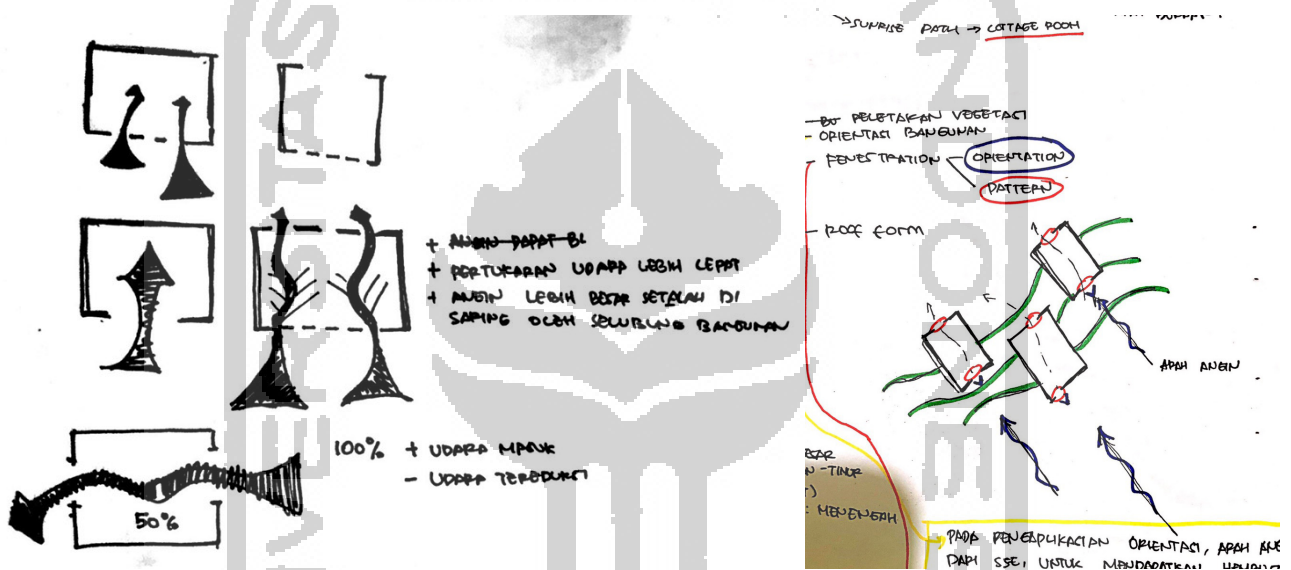 + ANGIN DAPAT BL
+ PERTUKARAN UDARA LEBIH CEPAT
+ ANGIN LEBIH BESAR SETELAH DI
SARING OLEH SELUBUNG BANGUNAN
100% + UDARA MASUK
- UDARA TEREDUKSI
50%
→ SUNRISE PATH → COTTAGE ROOM
- PELETAKAN VEGETASI
- ORIENTASI BANGUNAN
- FENESTRATION
ORIENTATION
PATTERN
- ROOF FORM
ARAH ANGIN
: MENENGAH
PADA PENGAPLIKASIAN ORIENTASI, ARAH
DARI SSE, UNTUK MENDAPATKAN
UNIVERSITAS